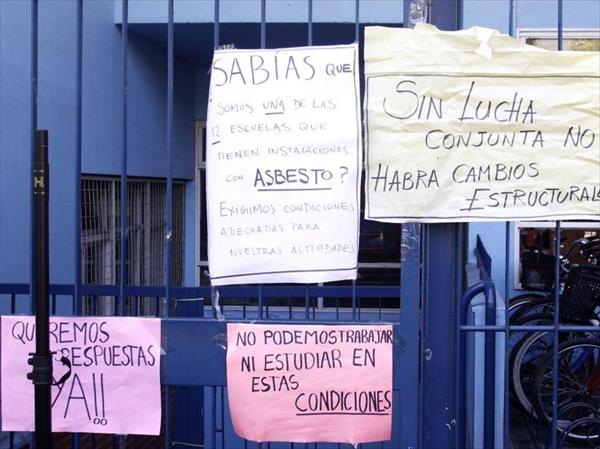 SABÍAS QUE
SOMOS UNA DE LAS
12 ESCUELAS QUE
TIENEN INSTALACIONES
CON ASBESTO?
EXIGIMOS CONDICIONES
ADECUADAS PARA
NUESTRAS ACTIVIDADES
SIN LUCHA
CONJUNTA NO
HABRA CAMBIOS
ESTRUCTURAL
QUEREMOS
RESPUESTAS
YA!!
NO PODEMOS TRABAJAR
NI ESTUDIAR EN
ESTAS
CONDICIONES